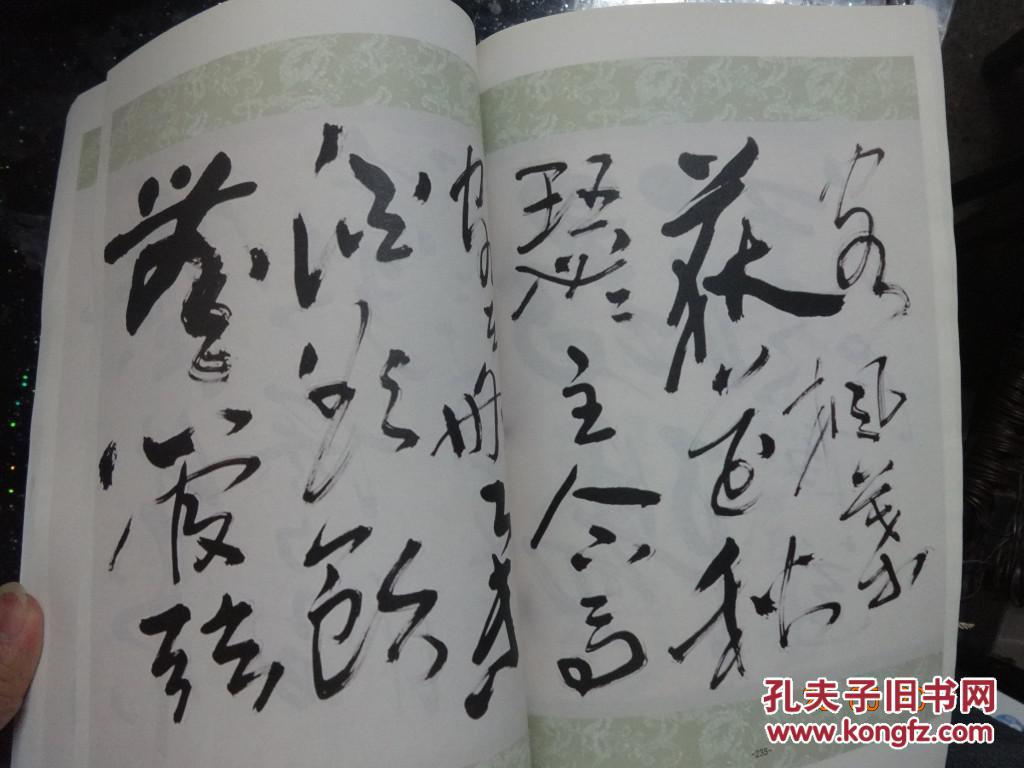 客楓葉
荻花秋
瑟〻主人下馬
客在船舉
酒欲飲
無管弦
-235-
孔夫子旧书网
www.kongfz.com